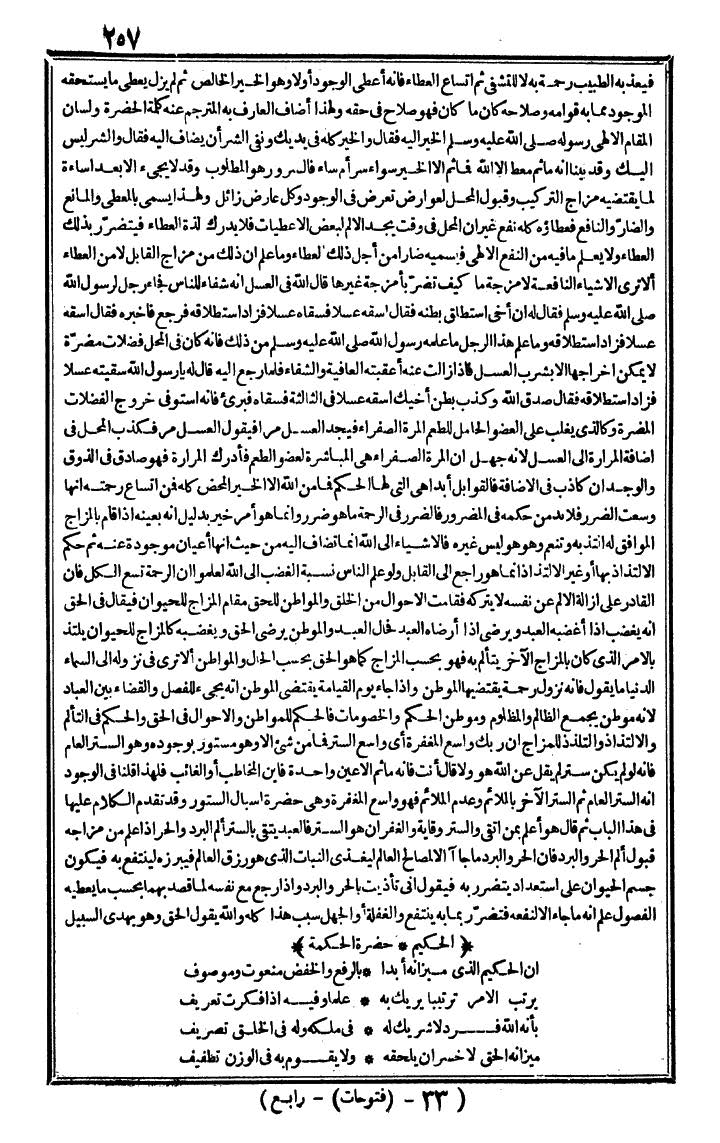 ٢٥٧
فيعذبه الطبيب رحمة به لا للتشفي ثم اتساع العطاء فانه أعطى الوجود أولا وهو الخير الخالص ثم لم يزل يعطي ما يستحقه
الموجود مما به قوامه وصلاحه كان ما كان فهو صلاح في حقه ولهذا أضاف العارف به المترجم عنه كلمة الحضرة ولسان
المقام الالهي رسوله صلى الله عليه وسلم الخير اليه فقال والخير كله في يديك ونفى الشر أن يضاف اليه فقال والشر ليس
اليك وقد بينا انه ماثم معط الا الله فماثم الا الخير سواء سر أم ساء فالسرور هو المطلوب وقد لا يجيء الا بعد اساءة
لما يقتضيه مزاج التركيب وقبول المحل لعوارض تعرض في الوجود وكل عارض زائل ولهذا يسمى بالمعطي والمانع
والضار والنافع فعطاؤه كله نفع غير ان المحل في وقت يجد الالم لبعض الاعطيات فلا يدرك لذة العطاء فيتضرر بذلك
العطاء ولا يعلم ما فيه من النفع الالهي فيسميه ضارا من أجل ذلك العطاء وما علم ان ذلك من مزاج القابل لا من العطاء
ألا ترى الاشياء النافعة لامزجة ما كيف تضر بأمزجة غيرها قال الله في العسل انه شفاء للناس فجاء رجل لرسول الله
صلى الله عليه وسلم فقال له ان أخي استطلق بطنه فقال اسقه عسلا فسقاه عسلا فزاد استطلاقه فرجع فأخبره فقال اسقه
عسلا فزاد استطلاقه وما علم هذا الرجل ما علمه رسول الله صلى الله عليه وسلم من ذلك فانه كان في المحل فضلات مضرة
لا يمكن اخراجها الا بشرب العسل فاذا زالت عنه أعقبته العافية والشفاء فلما رجع اليه قال له يا رسول الله سقيته عسلا
فزاد استطلاقه فقال صدق الله وكذب بطن أخيك اسقه عسلا في الثالثة فسقاه فبرئ فانه استوفى خروج الفضلات
المضرة وكالذي يغلب على العضو الحامل للطعم المرة الصفراء فيجد العسل مرا فيقول العسل مر فكذب المحل في
اضافة المرارة الى العسل لانه جهل ان المرة الصفراء هي المباشرة لعضو الطعم فأدرك المرارة فهو صادق في الذوق
والوجدان كاذب في الاضافة فالقوابل أبدا هي التي لها الحكم فما من الله الا الخير المحض كله فمن اتساع رحمته انها
وسعت الضرر فلا بد من حكمه في المضرور فالضرر في الرحمة ما هو ضرر وانما هو أمر خير بدليل انه بعينه اذا قام بالمزاج
الموافق له التذ به وتنعم وهو هو ليس غيره فالاشياء الى الله انما تضاف اليه من حيث انها أعيان موجودة عنه ثم حكم
الالتذاذ بها أو غير الالتذاذ انما هو راجع الى القابل ولو علم الناس نسبة الغضب الى الله لعلموا ان الرحمة تسع الكل فان
القادر على ازالة الالم عن نفسه لا يتركه فقامت الاحوال من الخلق والمواطن للحق مقام المزاج للحيوان فيقال في الحق
انه يغضب اذا أغضبه العبد ويرضى اذا أرضاه العبد فحال العبد والموطن يرضى الحق ويغضبه كالمزاج للحيوان يلتذ
بالامر الذي كان بالمزاج الآخر يتألم به فهو بحسب المزاج كما هو الحق بحسب الحال والمواطن ألا ترى في نزوله الى السماء
الدنيا ما يقول فانه نزول رحمة يقتضيها الموطن واذا جاء يوم القيامة يقتضي الموطن انه يجيء للفصل والقضاء بين العباد
لانه موطن يجمع الظالم والمظلوم وموطن الحكم والخصومات فالحكم للمواطن والاحوال في الحق والحكم في التألم
والالتذاذ والتلذذ للمزاج ان ربك واسع المغفرة أي واسع الستر فما من شئ الا وهو مستور بوجوده وهو الستر العام
فانه لو لم يكن ستر لم يقل عن الله هو ولا قال أنت فانه ماثم الا عين واحدة فاين المخاطب أو الغائب فلهذا قلنا في الوجود
انه الستر العام ثم الستر الآخر بالملائم وعدم الملائم فهو واسع المغفرة وهي حضرة اسبال الستور وقد تقدم الكلام عليها
في هذا الباب ثم قال هو أعلم بمن اتقى والستر وقاية والغفران هو الستر فالعبد يتقي بالستر ألم البرد والحر اذا علم من مزاجه
قبول ألم الحر والبرد فان الحر والبرد ما جاآ الا لمصالح العالم ليغذي النبات الذي هو رزق العالم فيبرزه لينتفع به فيكون
جسم الحيوان على استعداد يتضرر به فيقول اني تأذيت بالحر والبرد واذا رجع مع نفسه لما قصد بهما بحسب ما يعطيه
الفصول علم انه ما جاء الا لنفعه فتضرر بما به ينتفع والغفلة أو الجهل سبب هذا كله والله يقول الحق وهو يهدي السبيل
﴿الحكيم * حضرة الحكمة﴾
ان الحكيم الذي ميزانه أبدا * بالرفع والخفض منعوت وموصوف
يرتب الامر ترتيبا يريك به * علما وفيه اذا فكرت تعريف
بأنه الله فرد لا شريك له * في ملكه وله في الخلق تصريف
ميزانه الحق لا خسران يلحقه * ولا يقوم به في الوزن تطفيف
(٣٣ - (فتوحات) - رابع)